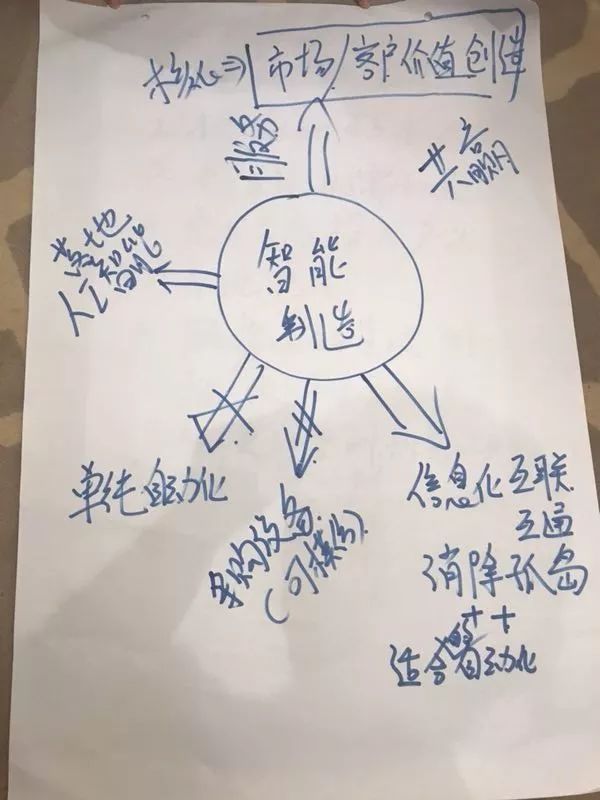 核心⇒市场/客户价值创造
服务
共启赐
落地
人工智能
智能
制造
单纯自动化
采购设备
(可模仿)
信息化互联
互通
消除孤岛
++
适合的自动化